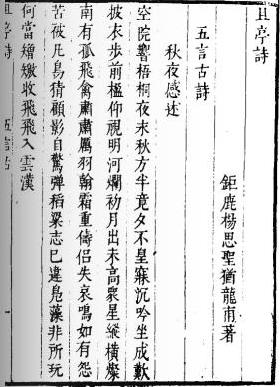 且亭詩
鉅鹿楊思聖猶龍甫著
五言古詩
秋夜感述
空院響梧桐夜未秋方半竟夕不皇寐沉吟坐成歎
披衣步前楹仰視明河爛初月出未高衆星縱橫燦
南有孤飛禽肅肅厲羽翰霜重儔侶失哀鳴如有怨
苦被凡鳥猜顧影自驚彈稻粱志已違鳧藻非所玩
何當矰繳收飛飛入雲漢
且亭詩 五言古